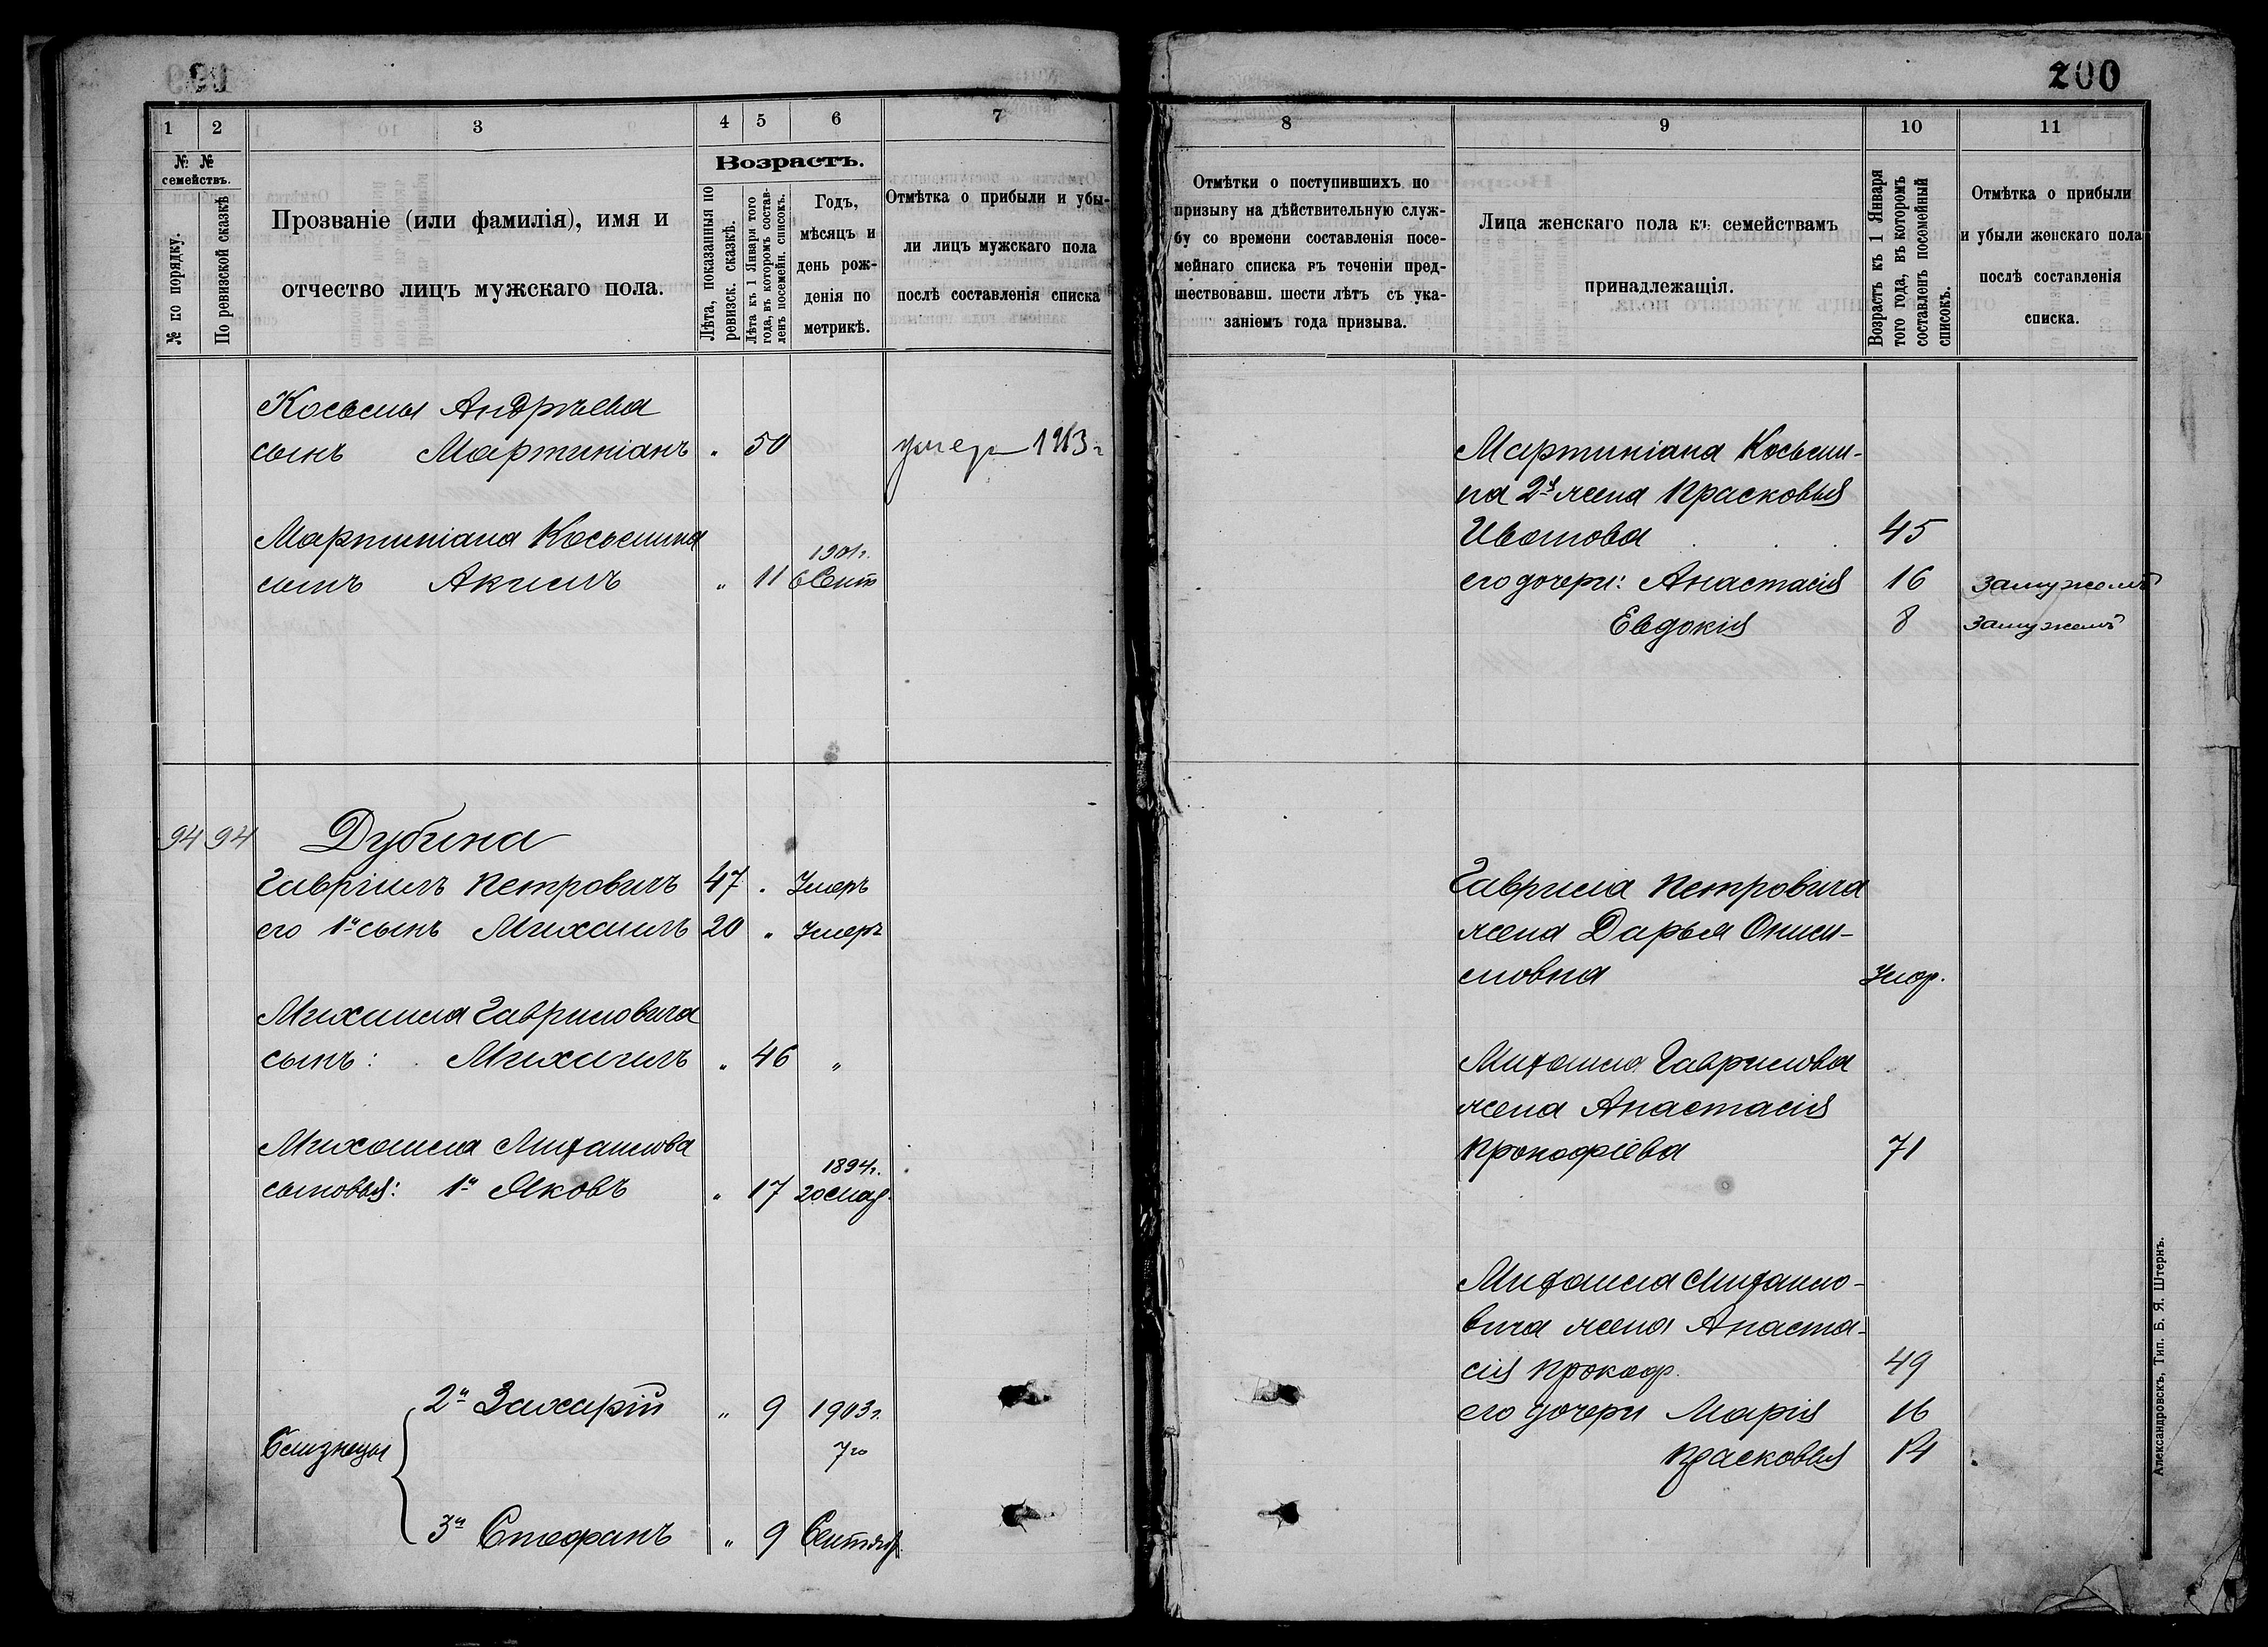 200
1 2 3 4 5 6 7
№ № семействъ.
№ по порядку.
По ревизской сказкѣ
Прозваніе (или фамилія), имя и
отчество лицъ мужскаго пола.
Возрастъ.
Лѣта, показанныя по
ревизск. сказкѣ.
Лѣта къ 1 Января того
года, въ которомъ состав-
ленъ посемейн. списокъ.
Годъ,
мѣсяцъ и
день рож-
денія по
метрикѣ.
Отмѣтка о прибыли и убы-
ли лицъ мужскаго пола
послѣ составленія списка
Косьмы Андрѣева
сынъ Мартиніанъ " 50 умеръ 1913 г
Мартиніана Косьмина
1901 г.
сынъ Акимъ " 11 6 Сент
94 94 Дубина
Гавріилъ Петровичъ 47 " Умеръ
его 1й сынъ Михаилъ 20 " Умеръ
Михаила Гавриловича
сынъ: Михаилъ " 46 "
Михаила Михаилова
1894 г.
сыновья: 1й Яковъ " 17 20 мар.
2й Захарій " 9 1903 г.
Близнецы 7го
3й Стефанъ " 9 Сентяб.
8 9 10 11
Отмѣтки о поступившихъ по
призыву на дѣйствительную служ-
бу со времени составленія посе-
мейнаго списка въ теченіи пред-
шествовавш. шести лѣтъ съ ука-
заніемъ года призыва.
Лица женскаго пола къ семействамъ
принадлежащія.
Возрастъ къ 1 Января
того года, въ которомъ
составленъ посемейный
списокъ.
Отмѣтка о прибыли
и убыли женскаго пола
послѣ составленія
списка.
Мартиніана Косьми-
на 2я жена Прасковья
Иванова 45
его дочери: Анастасія 16 замужемъ
Евдокія 8 замужемъ
Гаврила Петровича
жена Дарья Ониси-
мовна Умер.
Михаила Гаврилова
жена Анастасія
Прокофіева 71
Михаила Михаило-
вича жена Анаста-
сія Прокоф. 49
его дочери Марія 16
Прасковья 14
Александровскъ, Тип. Б. Я. Штернъ.